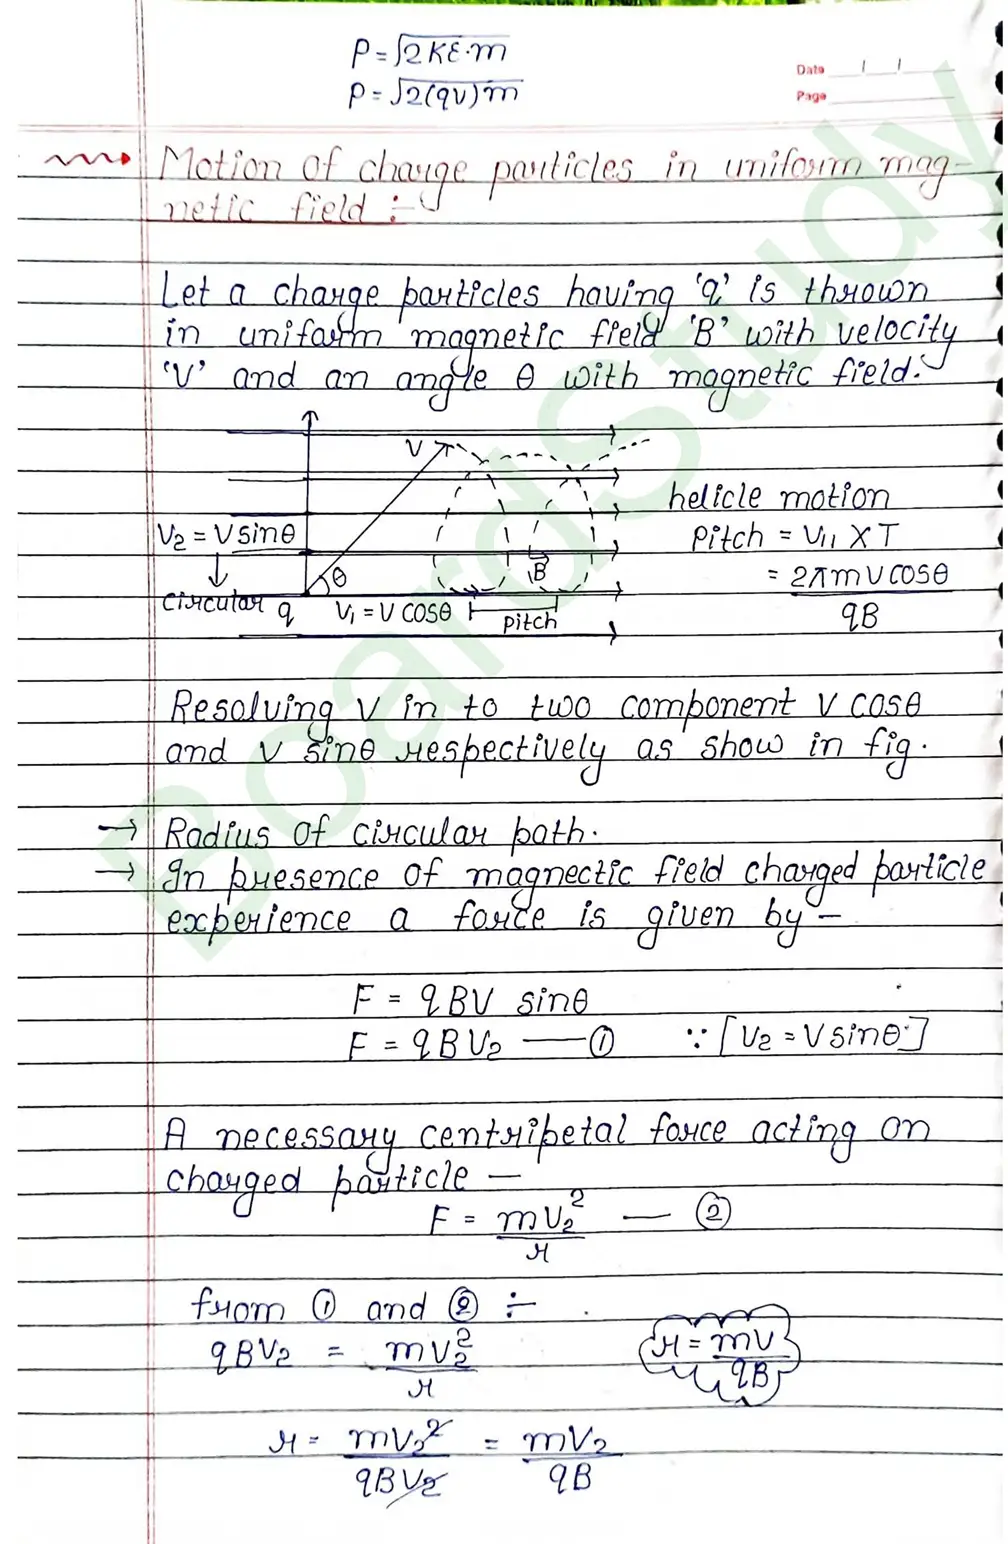 P = √2KE.m
P = √2(qV)m
Date
Page
Motion of charge particles in uniform mag-
netic field :-
Let a charge particles having 'q' is thrown
in uniform magnetic field 'B' with velocity
'V' and an angle θ with magnetic field.
V
V2 = V sinθ
↓
circular
q
θ
V1 = V COSθ
B
Pitch
helicle motion
Pitch = V11 X T
= 2πmVCOSθ
qB
Resolving V in to two component V cosθ
and V sinθ respectively as show in fig.
→ Radius of circular path.
→ In presence of magnectic field charged particle
experience a force is given by -
F = qBV sinθ
F = qBV2 — ① ∵ [V2 = V sinθ]
A necessary centripetal force acting on
charged particle -
F = mV2² — ②
r
from ① and ② :-
qBV2 = mV2²
r
r = mV
qB
r = mV2² = mV2
qBV2 qB
BoardStudy